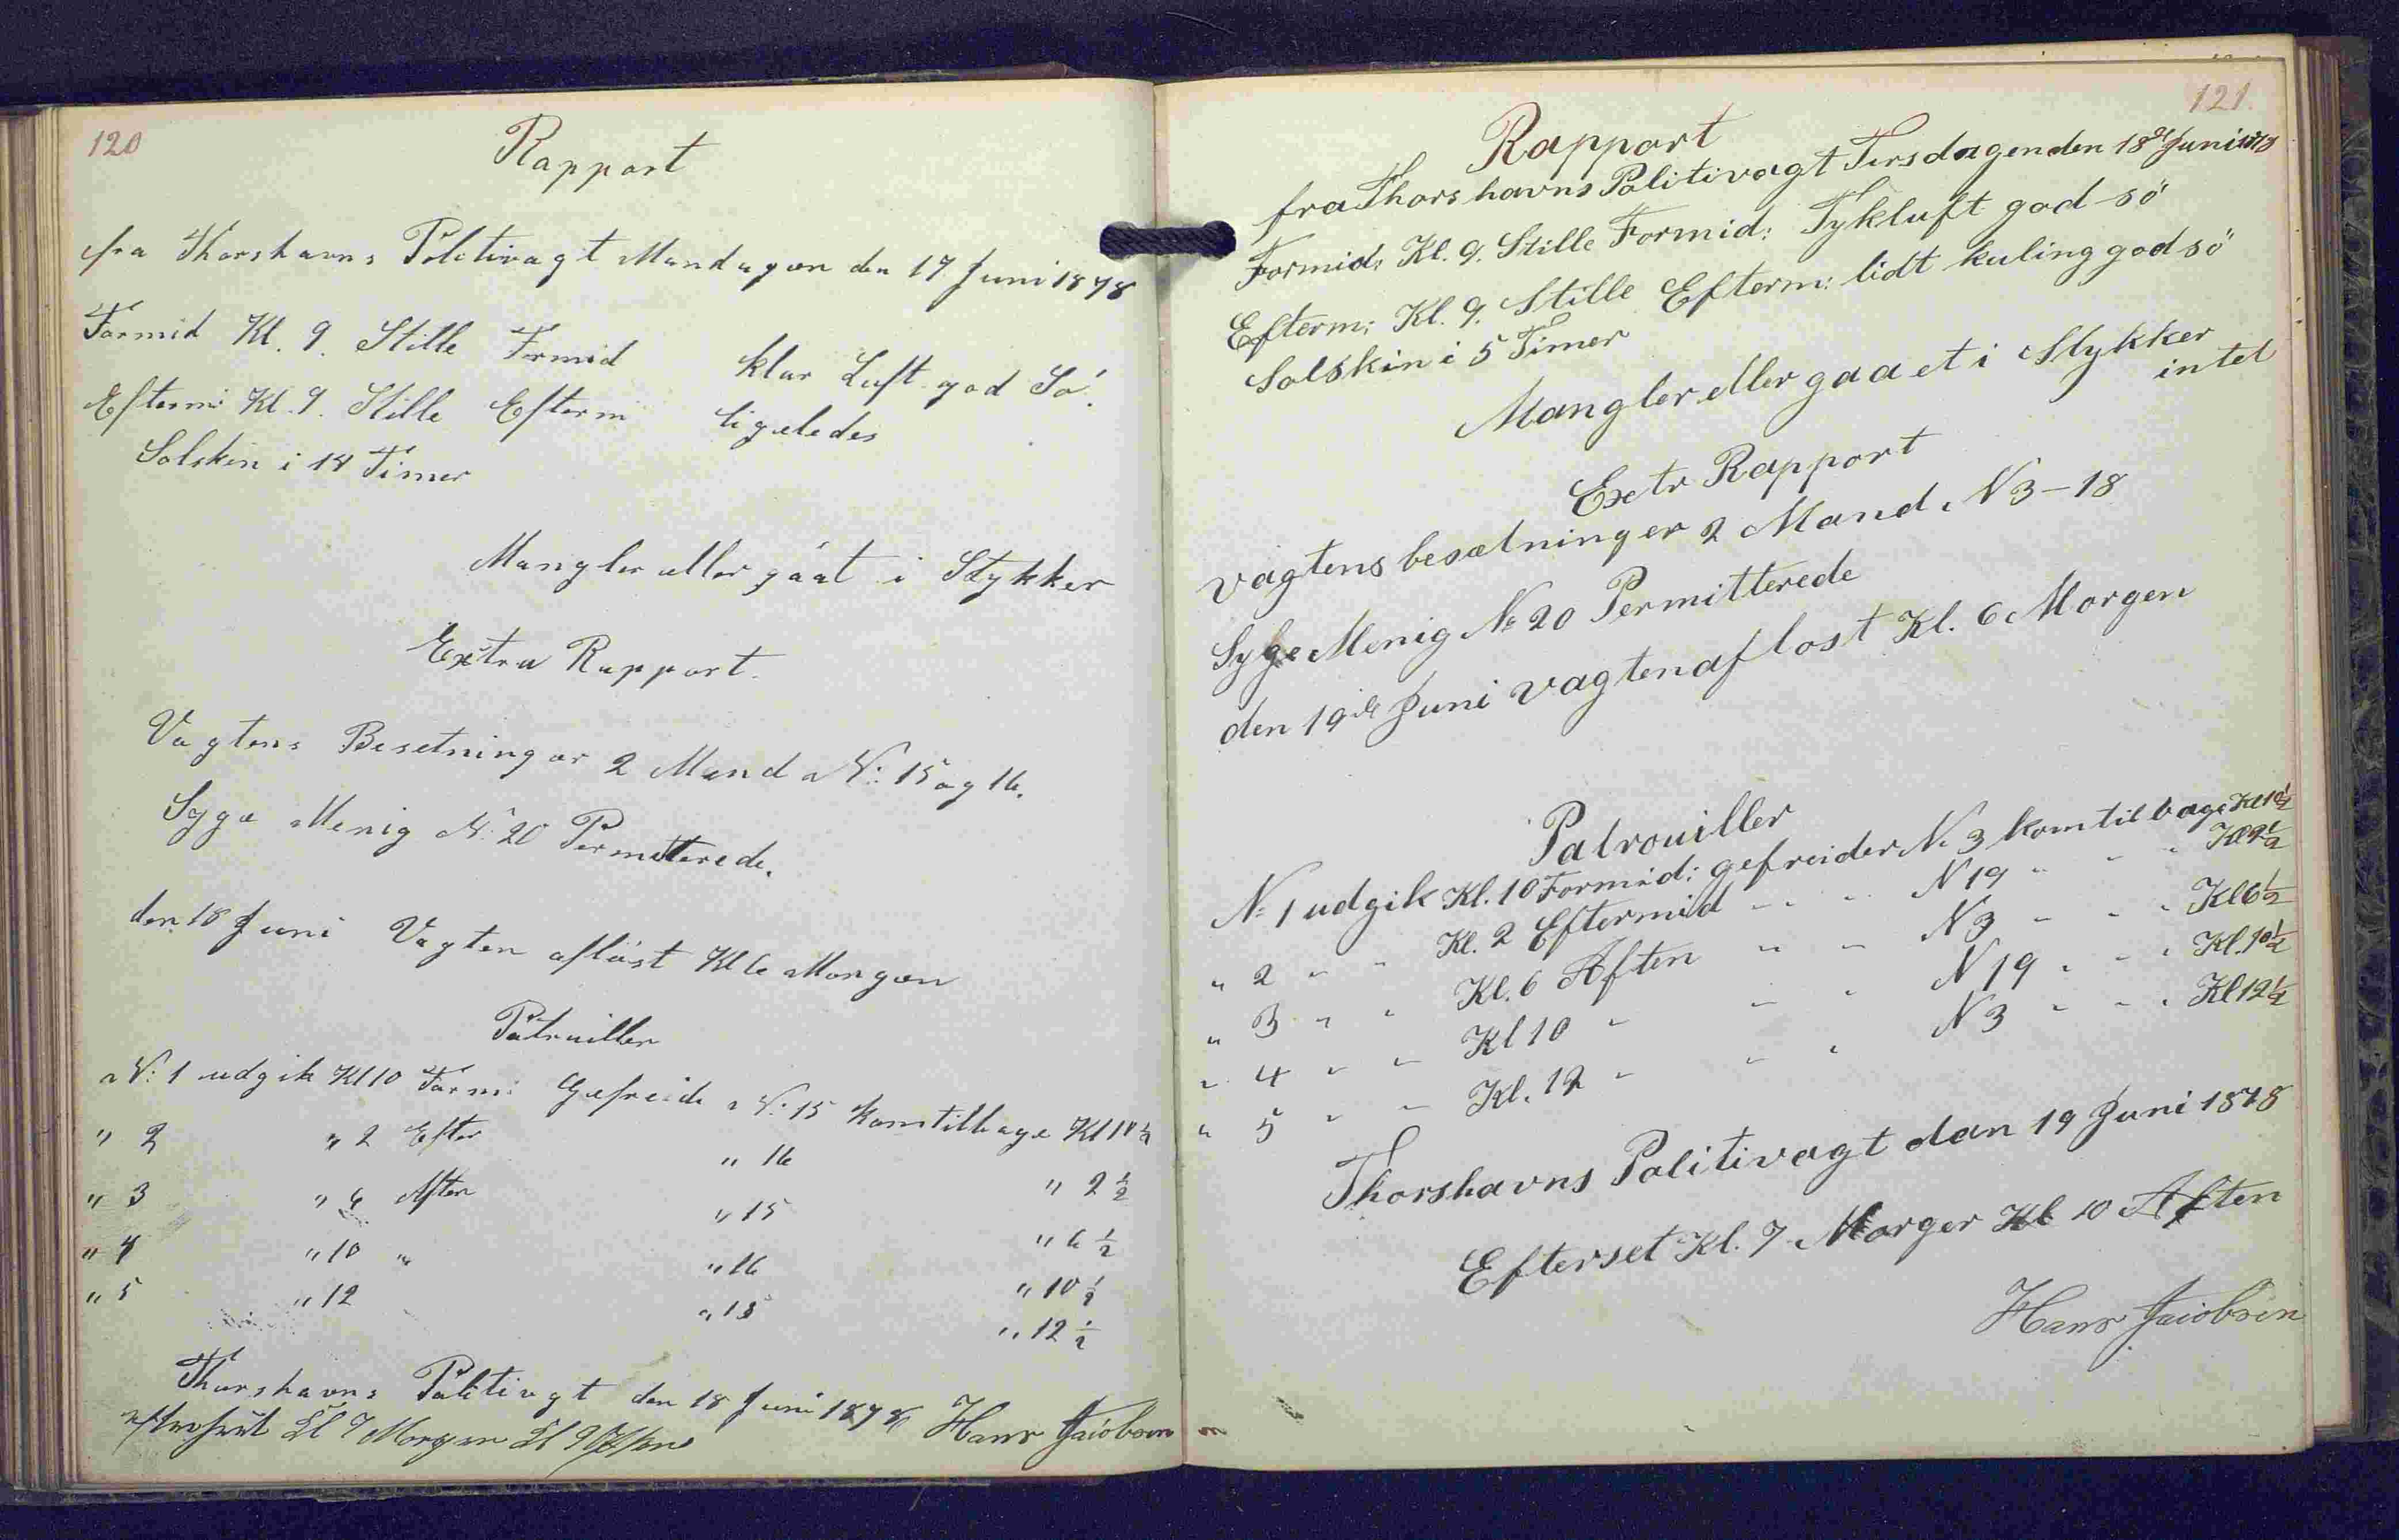 120
Rapport
fra Thorshavns Politivagt Mandagen den 17 Juni 1878
Formid Kl. 9. Stille Formid klar Luft god Sö.
Efterm: Kl. 9. Stille Efterm ligeledes
Solskin i 14 Timer
Mangler eller gáát i Stykker
Extra Rapport.
Vagtens Besetning er 2 Mand N: 15 og 16.
Syge Menig N: 20 Permitterede.
den 18 Juni Vagten aflöst Kl 6 Morgen
Patruiller
N: 1 udgik Kl 10 Form: Gefreide N: 15 kom tilbage Kl 10 1/2
" 2 " 2 Efter " 16 " 2 1/2
" 3 " 6 Aften " 15 " 6 1/2
" 4 " 10 " " 16 " 10 1/2
" 5 " 12 " 15 " 12 1/2
Thorshavns Politivagt den 18 Juni 1878 Hans Jacobsen
Kl 7 Morgen Kl 9 Aften
121.
Rapport
fra Thorshavns Politivagt Tirsdagen den 18de Juni 1878
Formid: Kl. 9. Stille Formid: Tykluft god sö
Efterm: Kl. 9. Stille Efterm: lidt kuling god sö
Solskin i 5 Timer
Mangler eller gaaet i Stykker
intet
Extr Rapport
Vagtens besætning er 2 Mand, N 3-18
Syge Menig No 20 Permitterede
den 19de Juni vagten aflost Kl. 6 Morgen
Patrouiller
N: 1 udgik Kl. 10 Formid: gefreider N. 3 kom tilbage Kl 10 1/2
" 2 " " Kl. 2 Eftermid " " " N 19 " " " Kl 2 1/2
" 3 " " Kl. 6 Aften " " N 3 " " " Kl 6 1/2
" 4 " " Kl 10 " " " N 19 " " " Kl. 10 1/2
" 5 " " Kl. 12 " " " N 3 " " " Kl 12 1/2
Thorshavns Politivagt den 19 Juni 1878
Efterset Kl. 7 Morger Kl 10 Aften
Hans Jacobsen